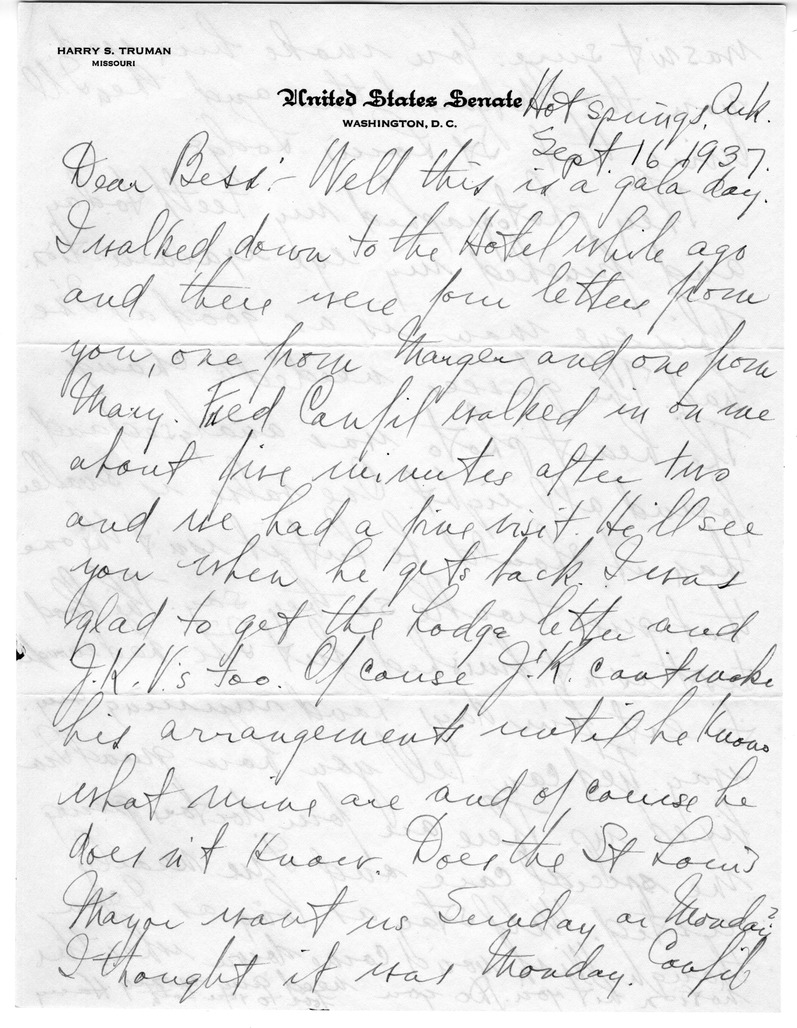 HARRY S. TRUMAN
MISSOURI
United States Senate
WASHINGTON, D. C.
Hot Springs, Ark.
Sept. 16, 1937.
Dear Bess:- Well this is a gala day.
I walked down to the Hotel while ago
and there were four letters from
you, one from Marger and one from
Mary. Fred Canfil walked in on me
about five minutes after two
and we had a fine visit. He'll see
you when he gets back. I was
glad to get the Lodge letter and
J.K.V.'s too. Of course J.K. can't make
his arrangements until he knows
what mine are and of course he
doesn't know. Does the St Louis
Mayor want us Sunday or Monday?
I thought it was Monday. Canfil